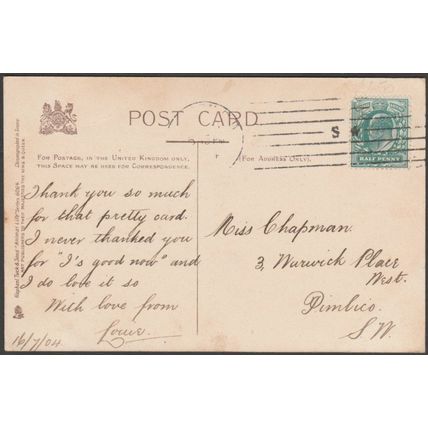 POST CARD
FOR POSTAGE, IN THE UNITED KINGDOM ONLY,
THIS SPACE MAY BE USED FOR CORRESPONDENCE.
(FOR ADDRESS ONLY).
S
HALF PENNY
Thank you so much
for that pretty card.
I never thanked you
for "I's good now" and
I do love it so
With love from
16/7/04
Miss Chapman.
3, Warwick Place
West.
Pimlico.
S.W.
Raphael Tuck & Sons'
ART PUBLISHERS TO THEIR MAJESTIES THE KING & QUEEN.